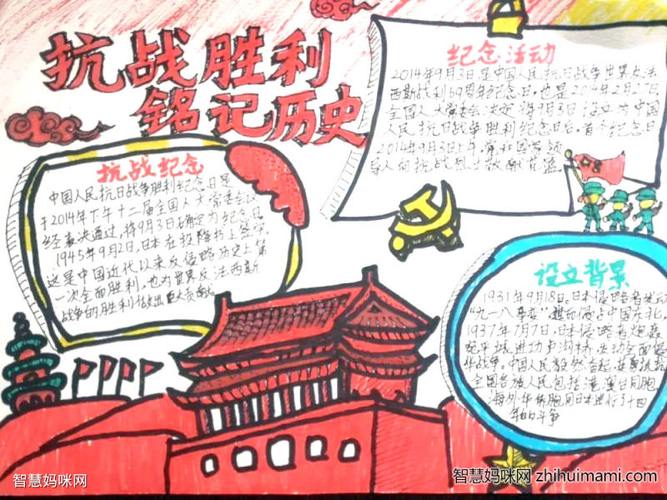 抗战胜利
铭记历史
纪念活动
2014年9月3日是中国人民抗日战争暨世界反法
西斯战利69周年纪念日。也是2014年2月27日
全国人大常委会决定将9月3日设立为中国
人民抗日战争胜利纪念日后,首个纪念日
2014年9月3日上午,党和国家领
导人向抗战烈士敬献花篮
抗战纪念
中国人民抗日战争胜利纪念日是
于2014年下午十二届全国人大常委会以
经表决通过,将9月3日确定为纪念日
1945年9月2日,日本在投降书上签字
这是中国近代以来反侵略历史上第
一次全面胜利,也为世界反法西斯
战争的胜利做出巨大贡献
设立背景
1931年9月18日,日本侵略者发动
"九一八事变"
1937年7月7日,日本侵略者炮轰
宛平城进攻卢沟桥,发动全面侵
华战争。中国人民毅然奋起
全国各族人民包括港澳台同胞
海外华侨同胞同日本进行了十四
年的斗争
智慧妈咪网
智慧妈咪网 zhihuimami.com